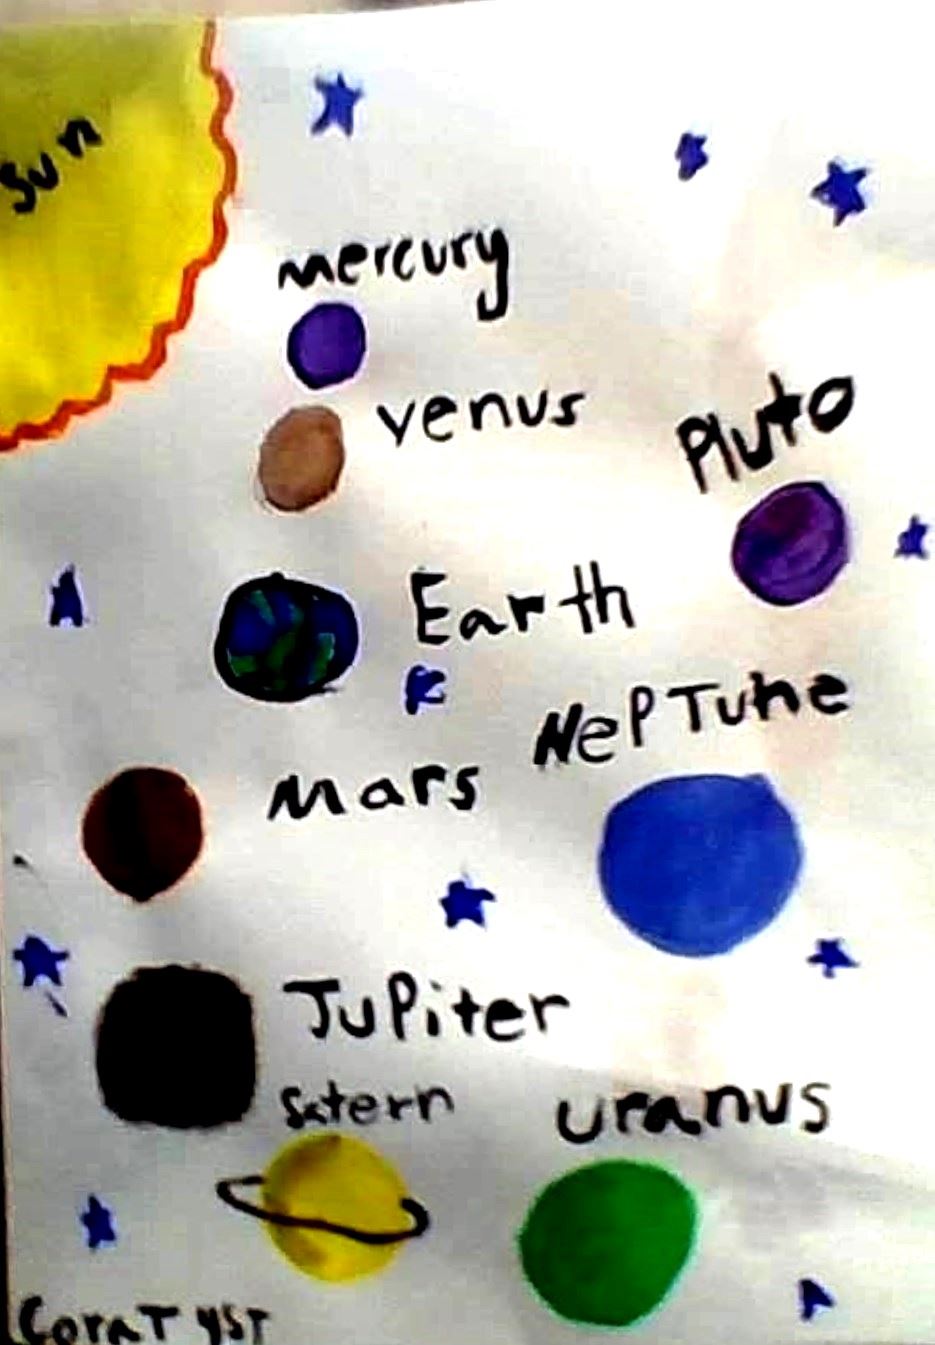 Sun
mercury
venus
Pluto
Earth
NePTune
mars
JuPiter
Satern
uranus